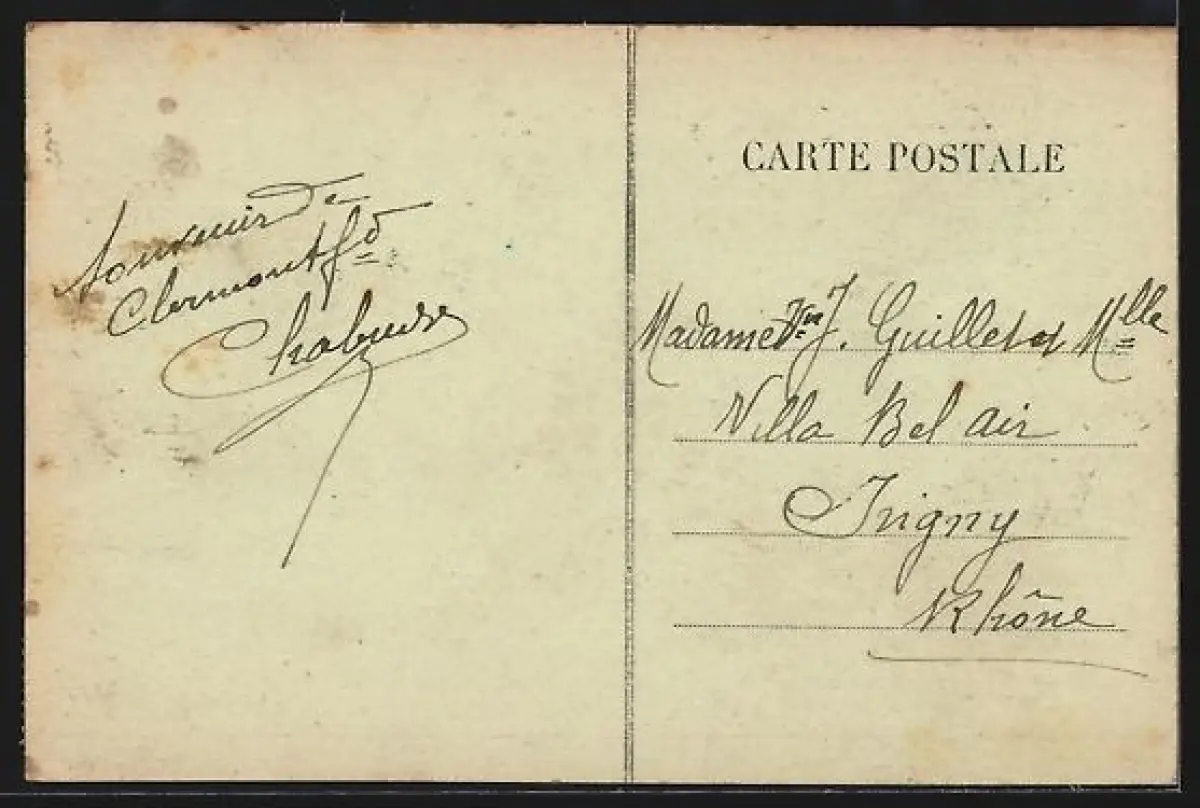 Souvenir de
Clermont Fd
CARTE POSTALE
Madame Vve J. Guillet et Mlle
Villa Bel air
Irigny
Rhône